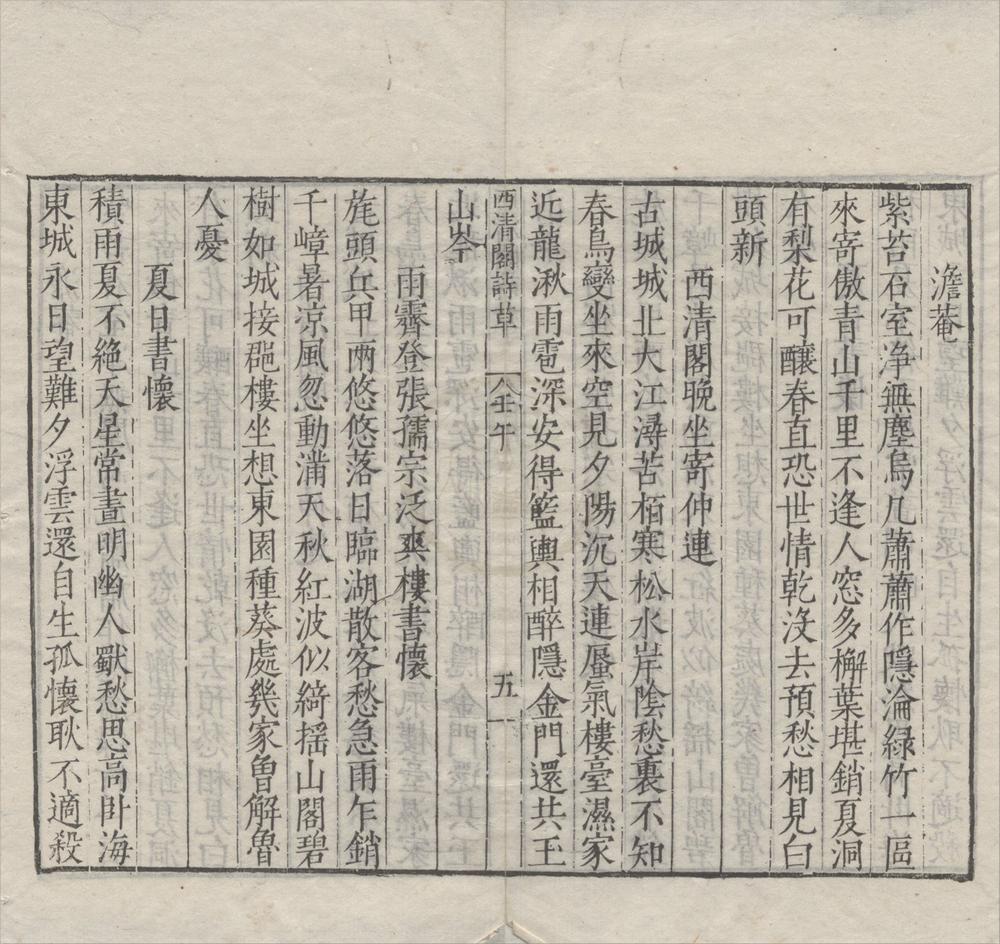 澹菴
紫苔石室净無塵烏几蕭蕭作隱淪綠竹一區
來寄傲青山千里不逢人窓多檞葉堪銷夏洞
有梨花可釀春直恐世情乾沒去預愁相見白
頭新
西清閣晚坐寄仲連
古城城北大江潯苦栢寒松水岸陰愁裏不知
春鳥變坐來空見夕陽沉天連蜃氣樓臺濕家
近龍湫雨雹深安得籃輿相醉隱金門還共玉
山岑
西清閣詩草
八壬午
五
雨霽登張孺宗泛爽樓書懷
旄頭兵甲兩悠悠落日臨湖散客愁急雨乍銷
千嶂暑凉風忽動滿天秋紅波似綺揺山閣碧
樹如城接䣕樓坐想東園種葵處幾家魯解魯
人憂
夏日書懷
積雨夏不絶天星常晝明幽人獸愁思高卧海
東城永日望難夕浮雲還自生孤懷耿不適殺